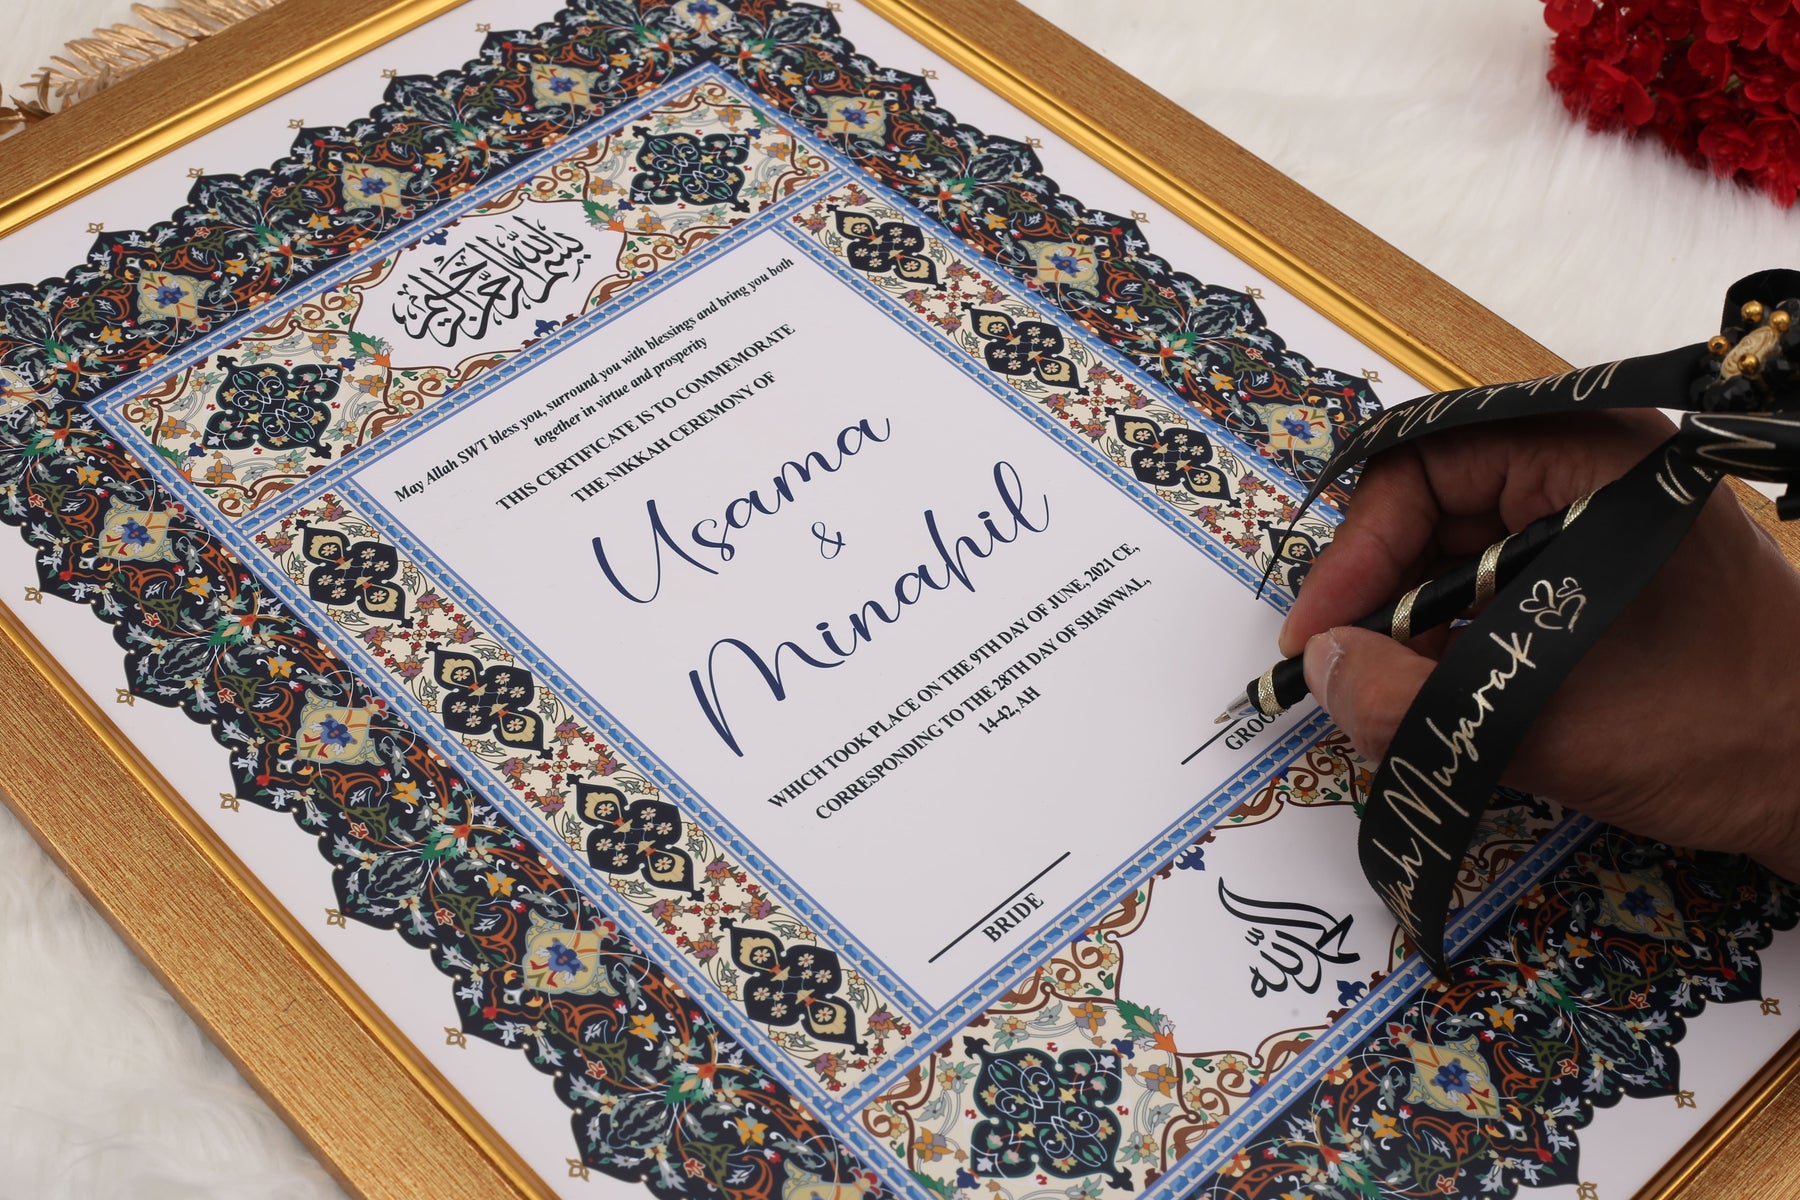 بسم الله الرحمن الرحيم
May Allah SWT bless you, surround you with blessings and bring you both
together in virtue and prosperity
THIS CERTIFICATE IS TO COMMEMORATE
THE NIKKAH CEREMONY OF
Usama
&
Minahil
WHICH TOOK PLACE ON THE 9TH DAY OF JUNE, 2021 CE,
CORRESPONDING TO THE 28TH DAY OF SHAWWAL,
14-42, AH
BRIDE
الحمد لله
Mubarak